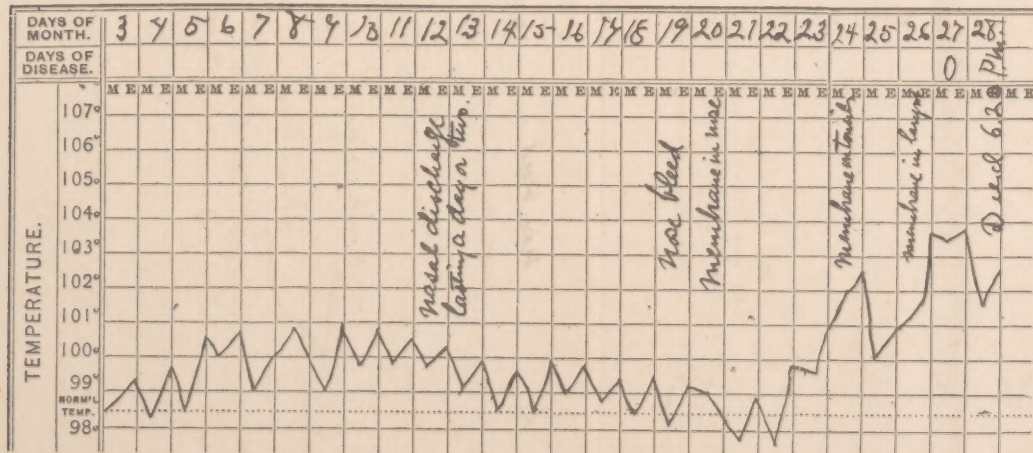 DAYS OF MONTH. 3 4 5 6 7 8 9 10 11 12 13 14 15 16 17 18 19 20 21 22 23 24 25 26 27 28
DAYS OF DISEASE. 0
M E M E M E M E M E M E M E M E M E M E M E M E M E M E M E M E M E M E M E M E M E M E M E M E M E M E M E
TEMPERATURE.
107°
106°
105°
104°
103°
102°
101°
100°
99°
NORM'L TEMP.
98°
nasal discharge
lasting a day or two.
nose bleed
membrane in nose
membrane on tonsils
membrane in larynx
Died 6.20 P.M.